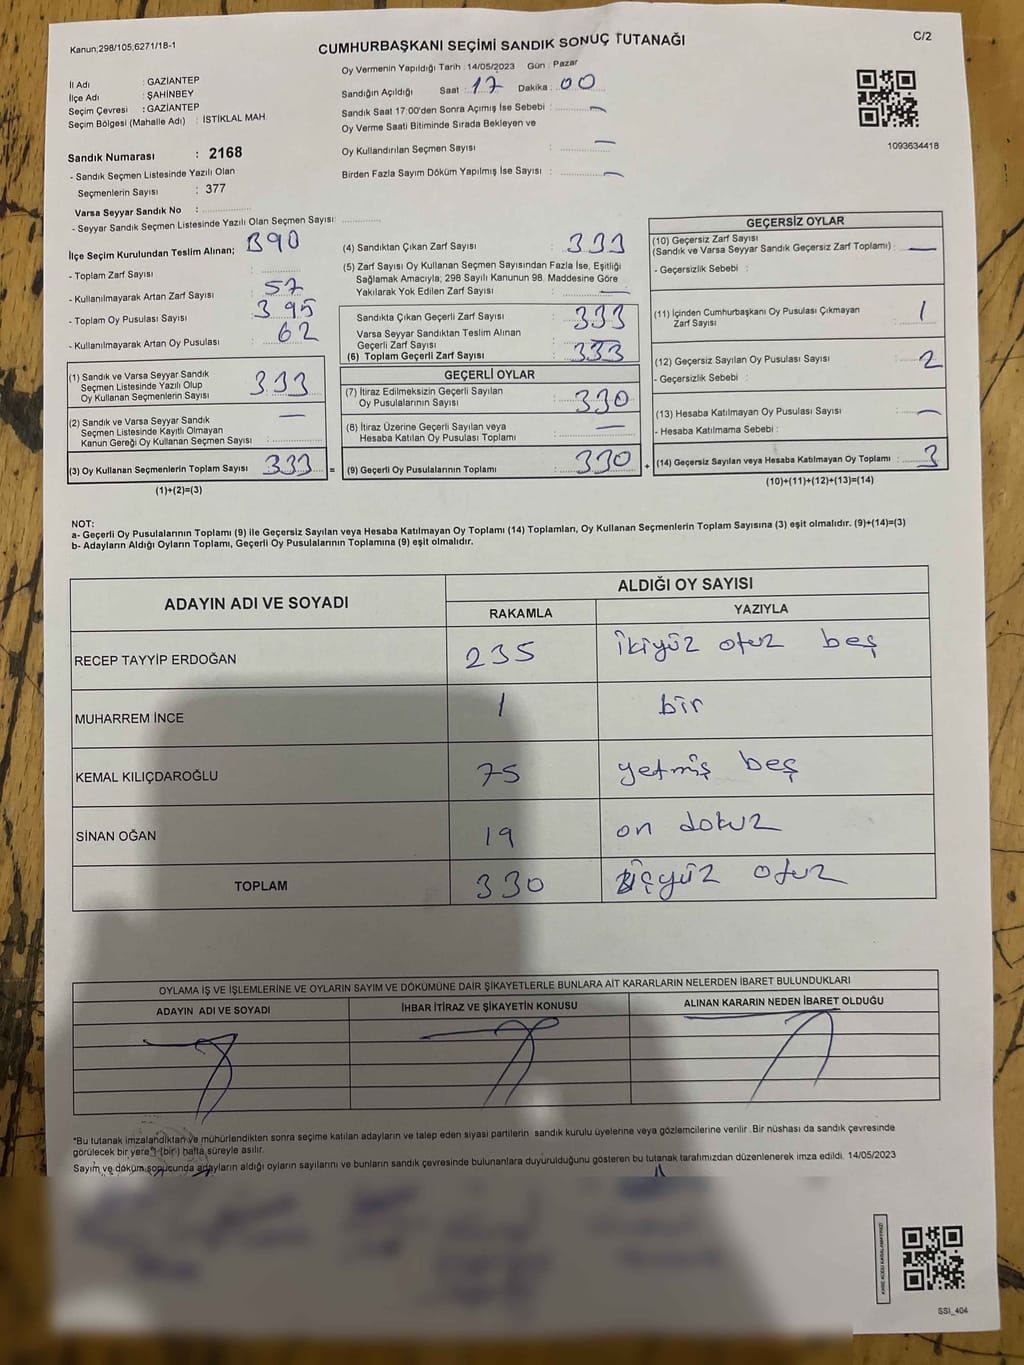 Kanun;298/105;6271/18-1
CUMHURBAŞKANI SEÇİMİ SANDIK SONUÇ TUTANAĞI
C/2
İl Adı : GAZİANTEP
İlçe Adı : ŞAHİNBEY
Seçim Çevresi : GAZİANTEP
Seçim Bölgesi (Mahalle Adı) : İSTİKLAL MAH.
Oy Vermenin Yapıldığı Tarih : 14/05/2023 Gün : Pazar
Sandığın Açıldığı Saat : 17 Dakika : 00
Sandık Saat 17:00'den Sonra Açımış İse Sebebi : —
Oy Verme Saati Bitiminde Sırada Bekleyen ve
Oy Kullandırılan Seçmen Sayısı : —
Birden Fazla Sayım Döküm Yapılmış İse Sayısı : —
1093634418
Sandık Numarası : 2168
- Sandık Seçmen Listesinde Yazılı Olan
Seçmenlerin Sayısı : 377
Varsa Seyyar Sandık No :
- Seyyar Sandık Seçmen Listesinde Yazılı Olan Seçmen Sayısı:
İlçe Seçim Kurulundan Teslim Alınan; 390
- Toplam Zarf Sayısı :
- Kullanılmayarak Artan Zarf Sayısı : 57
- Toplam Oy Pusulası Sayısı : 395
- Kullanılmayarak Artan Oy Pusulası : 62
(1) Sandık ve Varsa Seyyar Sandık
Seçmen Listesinde Yazılı Olup
Oy Kullanan Seçmenlerin Sayısı : 333
(2) Sandık ve Varsa Seyyar Sandık
Seçmen Listesinde Kayıtlı Olmayan
Kanun Gereği Oy Kullanan Seçmen Sayısı : —
(3) Oy Kullanan Seçmenlerin Toplam Sayısı : 333 =
(1)+(2)=(3)
(4) Sandıktan Çıkan Zarf Sayısı : 333
(5) Zarf Sayısı Oy Kullanan Seçmen Sayısından Fazla İse, Eşitliği
Sağlamak Amacıyla; 298 Sayılı Kanunun 98. Maddesine Göre
Yakılarak Yok Edilen Zarf Sayısı : —
Sandıkta Çıkan Geçerli Zarf Sayısı : 333
Varsa Seyyar Sandıktan Teslim Alınan
Geçerli Zarf Sayısı : —
(6) Toplam Geçerli Zarf Sayısı : 333
GEÇERLİ OYLAR
(7) İtiraz Edilmeksizin Geçerli Sayılan
Oy Pusulalarının Sayısı : 330
(8) İtiraz Üzerine Geçerli Sayılan veya
Hesaba Katılan Oy Pusulası Toplamı : —
(9) Geçerli Oy Pusulalarının Toplamı : 330 +
GEÇERSİZ OYLAR
(10) Geçersiz Zarf Sayısı
(Sandık ve Varsa Seyyar Sandık Geçersiz Zarf Toplamı) : —
- Geçersizlik Sebebi :
(11) İçinden Cumhurbaşkanı Oy Pusulası Çıkmayan
Zarf Sayısı : 1
(12) Geçersiz Sayılan Oy Pusulası Sayısı : 2
- Geçersizlik Sebebi :
(13) Hesaba Katılmayan Oy Pusulası Sayısı : —
- Hesaba Katılmama Sebebi :
(14) Geçersiz Sayılan veya Hesaba Katılmayan Oy Toplamı : 3
(10)+(11)+(12)+(13)=(14)
NOT:
a- Geçerli Oy Pusulalarının Toplamı (9) ile Geçersiz Sayılan veya Hesaba Katılmayan Oy Toplamı (14) Toplamları, Oy Kullanan Seçmenlerin Toplam Sayısına (3) eşit olmalıdır. (9)+(14)=(3)
b- Adayların Aldığı Oyların Toplamı, Geçerli Oy Pusulalarının Toplamına (9) eşit olmalıdır.
ADAYIN ADI VE SOYADI ALDIĞI OY SAYISI
RAKAMLA YAZIYLA
RECEP TAYYİP ERDOĞAN 235 ikiyüz otuz beş
MUHARREM İNCE 1 bir
KEMAL KILIÇDAROĞLU 75 yetmiş beş
SİNAN OĞAN 19 on dokuz
TOPLAM 330 üçyüz otuz
OYLAMA İŞ VE İŞLEMLERİNE VE OYLARIN SAYIM VE DÖKÜMÜNE DAİR ŞİKAYETLERLE BUNLARA AİT KARARLARIN NELERDEN İBARET BULUNDUKLARI
ADAYIN ADI VE SOYADI İHBAR İTİRAZ VE ŞİKAYETİN KONUSU ALINAN KARARIN NEDEN İBARET OLDUĞU
*Bu tutanak imzalandıktan ve mühürlendikten sonra seçime katılan adayların ve talep eden siyasi partilerin sandık kurulu üyelerine veya gözlemcilerine verilir. Bir nüshası da sandık çevresinde
görülecek bir yere 1 (bir) hafta süreyle asılır.
Sayım ve döküm sonucunda adayların aldığı oyların sayılarını ve bunların sandık çevresinde bulunanlara duyurulduğunu gösteren bu tutanak tarafımızdan düzenlenerek imza edildi. 14/05/2023
SSI_404